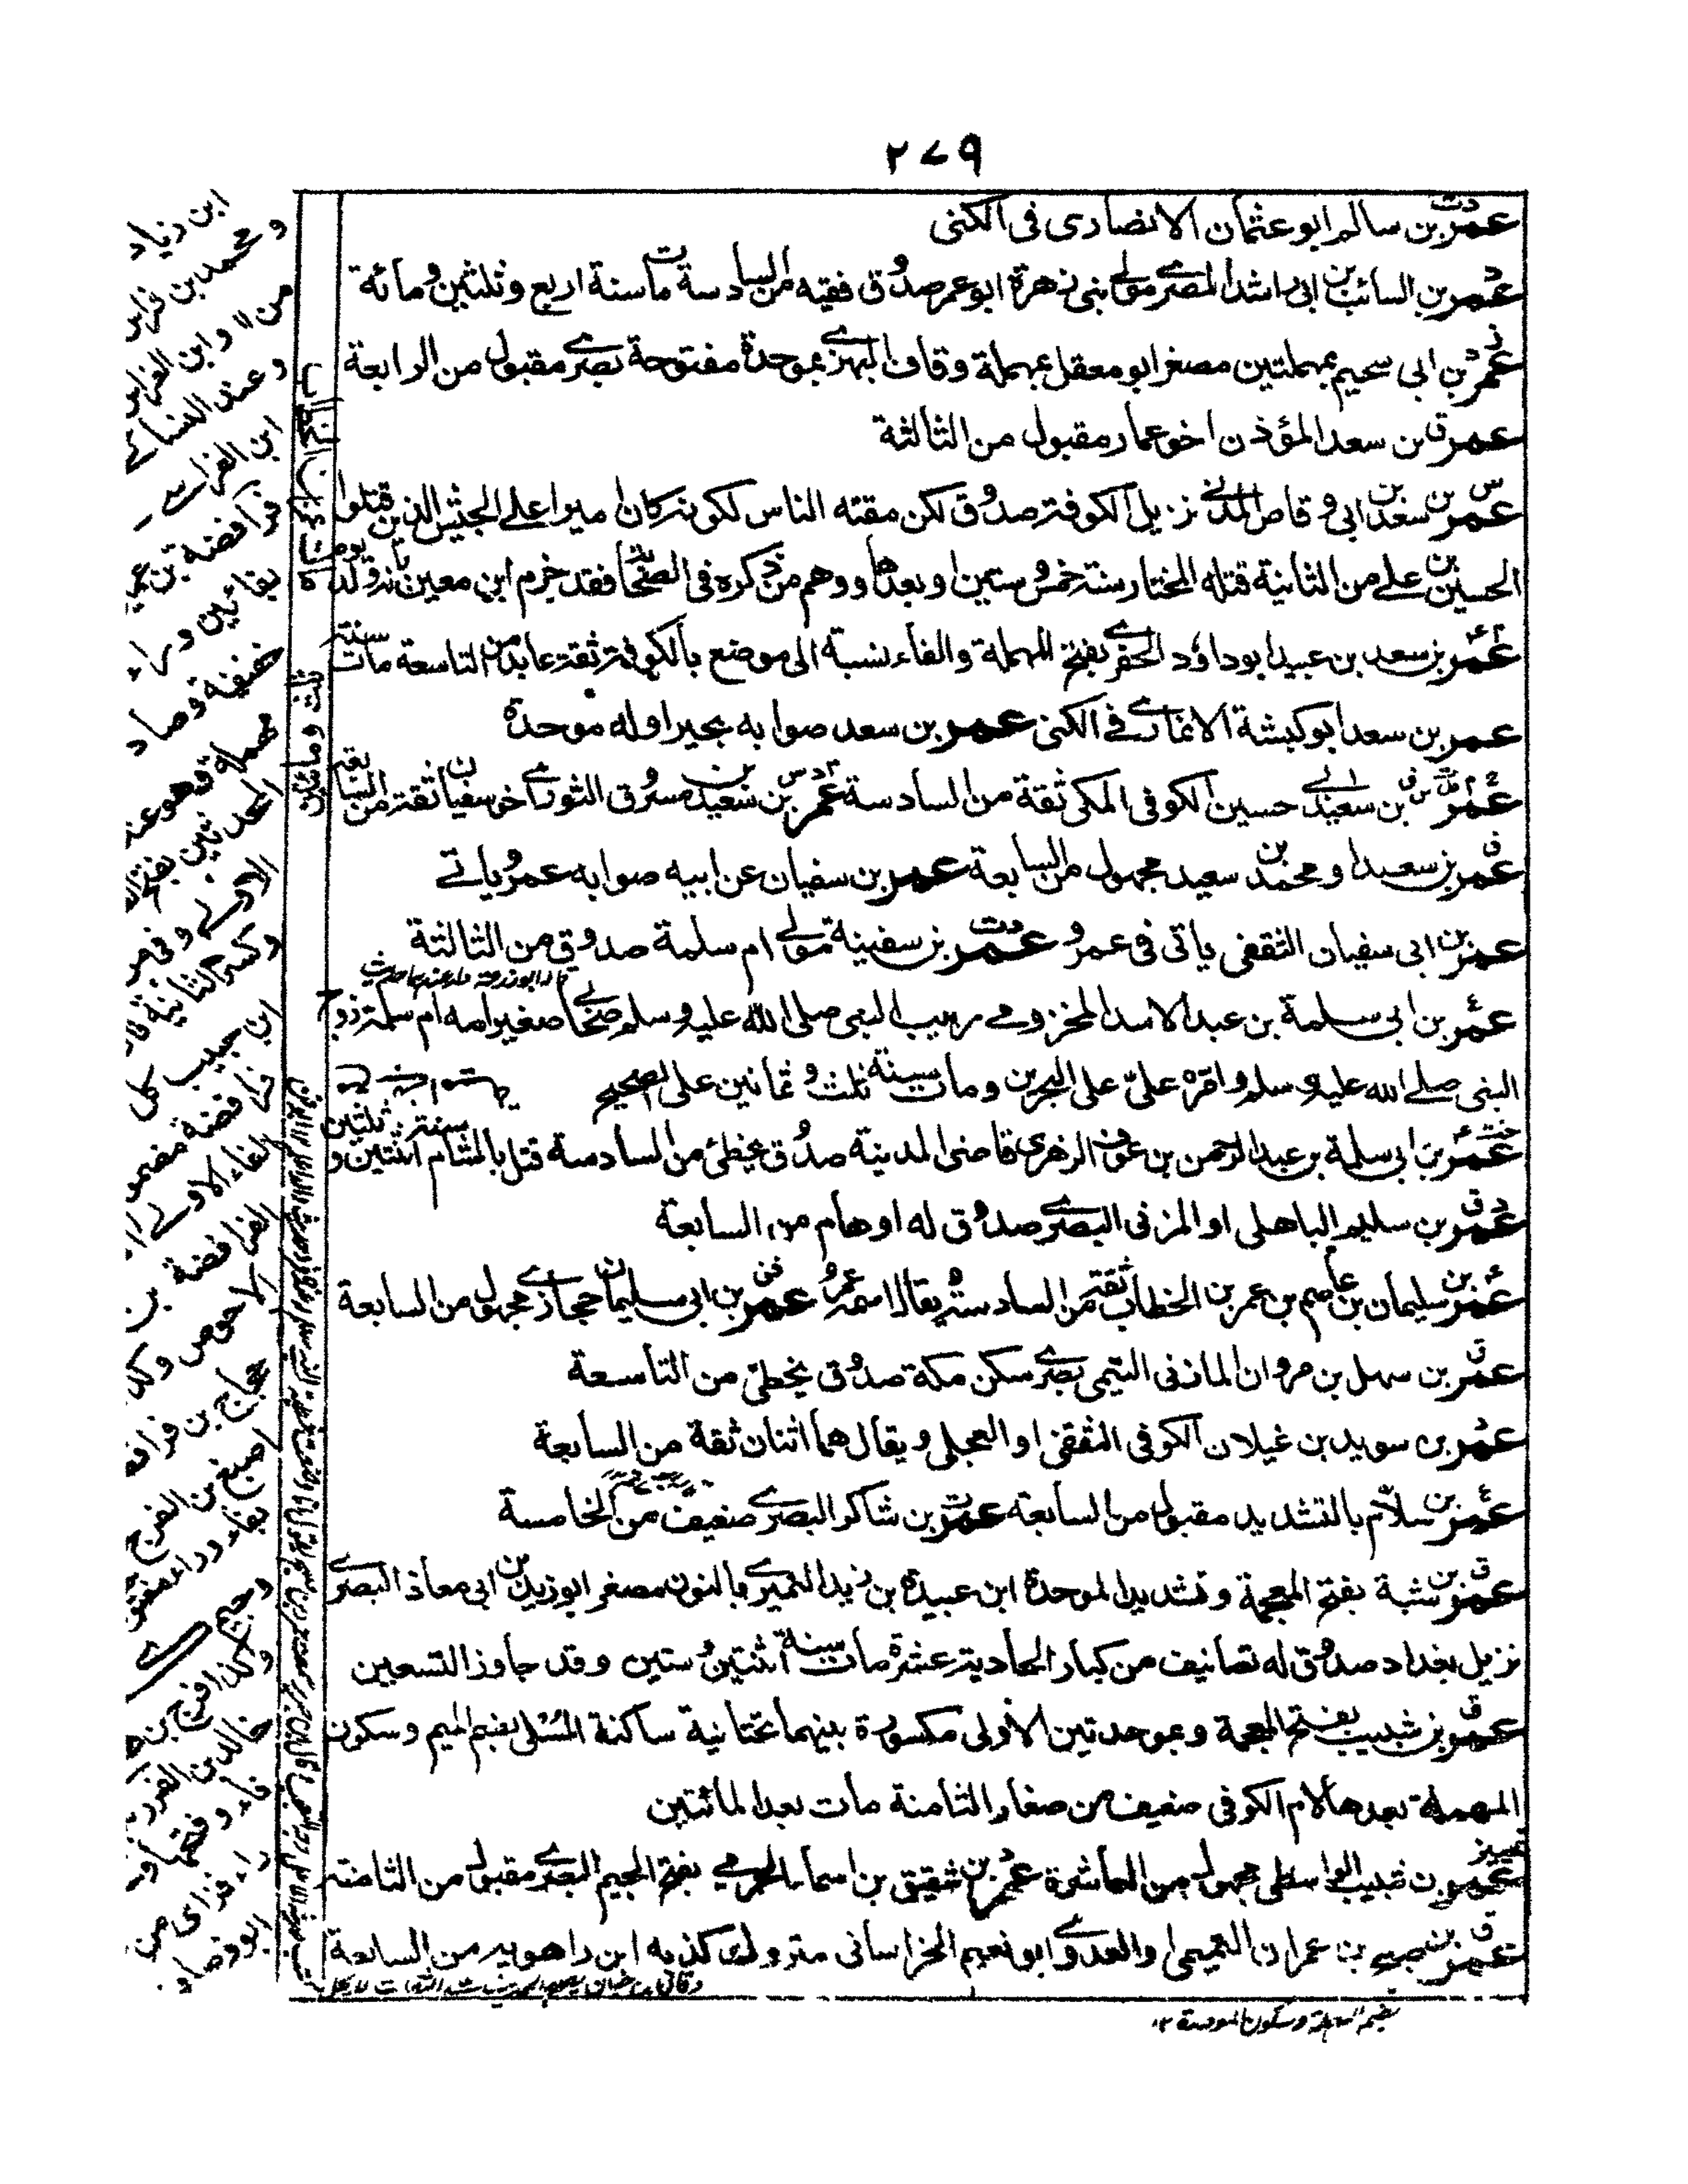 ٢٧٩
عمر بن سالم ابو عثمان الانصارى فى الكنى
عمر بن السائب بن ابى راشد المصرے مولى بنى زهرة ابو عمر صدوق فقيه من السادسة مات سنة اربع وثلثين ومائة
عمر بن ابى سحيم بمهملتين مصغر ابو معقل بمهملة وقاف البهزے بموحدة مفتوحة بصرے مقبول من الرابعة
عمر بن سعد المؤذن اخو عمار مقبول من الثالثة
عمر بن سعد بن ابى وقاص المدنى نزيل الكوفة صدوق لكن مقته الناس لكونه كان اميرا على الجيش الذين قتلوا
الحسين بن علے من الثانية قتله المختار سنة خمس وستين او بعدها ووهم من ذكره فى الصحابة فقد جزم ابن معين بانه ولد يوم
مات عمر بن الخطاب
عمر بن سعد بن عبيد ابو داؤد الحفرے بفتح المهملة والفاء نسبة الى موضع بالكوفة ثقة عابد من التاسعة مات سنة
ثلاث ومائتين
عمر بن سعد ابو كبشة الانمارے فے الكنى عمر بن سعد صوابه بحير اوله موحدة
عمر بن سعيد بن ابے حسين الكوفى المكى ثقة من السادسة عمر بن سعيد بن مسروق الثورے اخو سفيان ثقة من السابعة
عمر بن سعيد او محمد بن سعيد مجهول من السابعة عمر بن سفيان عن ابيه صوابه عمرو ياتے
عمر بن ابى سفيان الثقفى ياتى فى عمرو عمر بن سفينة مولے ام سلمة صدوق من الثالثة
عمر بن ابى سلمة بن عبد الاسد المخزومے ربيب النبى صلى الله عليه وسلم صحابے صغير امه ام سلمة زوج
النبى صلے الله عليه وسلم وامّره علىّ على البحرين ومات سنة ثلث وثمانين على الصحيح
عمر بن ابى سلمة بن عبد الرحمن بن عوف الزهرى قاضى المدينة صدوق يخطئ من السادسة قتل بالشام سنة اثنتين وثلثين
عمر بن سليم الباهلى او المزنى البصرے صدوق له اوهام من السابعة
عمر بن سليمان بن عاصم بن عمر بن الخطاب ثقة من السادسة ويقال اسمه عمرو عمر بن ابى سليمان حجازے مجهول من السابعة
عمر بن سهل بن مروان المازنى التيمى بصرے سكن مكة صدوق يخطئ من التاسعة
عمر بن سويد بن غيلان الكوفى الثقفى او العجلى ويقال هما اثنان ثقة من السابعة
عمر بن سلّام بالتشديد مقبول من السابعة عمر بن شاكر البصرے ضعيف من الخامسة
عمر بن شبة بفتح المعجمة وتشديد الموحدة ابن عبيدة بن زيد النميرے بالنون مصغر ابو زيد بن ابى معاذ البصرے
نزيل بغداد صدوق له تصانيف من كبار الحادية عشرة مات سنة اثنتين وستين وقد جاوز التسعين
عمر بن شبيب بفتح المعجمة وبموحدتين الاولى مكسورة بينهما تحتانية ساكنة المُسْلى بضم الميم وسكون
المهملة بعدها لام الكوفى ضعيف من صغار الثامنة مات بعد المائتين
عمر بن شبيب الواسطى مجهول من العاشرة عمر بن شقيق بن اسماء الجرمے بفتح الجيم البصرے مقبول من الثامنة
عمر بن صبح بن عمران التميمى او العدوے ابو نعيم الخراسانى متروك كذبه ابن راهويه من السابعة
بضم المهملة وسكون الموحدة ١٢
ابن زياد
و محمد بن فراس
من ١١ و ابن الفراس
و عند النسائے
ابن الفراسے
فرافضة بن عمير
بفائين وراء
خفيفة وصاد
مهملة فهو عند
المحدثين بفتح
الاولے وفى
وكسر الثانية قال
ابن حبيب كل
فرافضة مضموم
الفاء الاولے
الفرافضة بن
الاحوص وكذا
حجاج بن فرافصة
اصبغ بن الفرج
بفاء وراء مفتو
وجيم
وكذا فرج بن
خالد بن الفزر
فاء وفتحها و
راء فزاى من